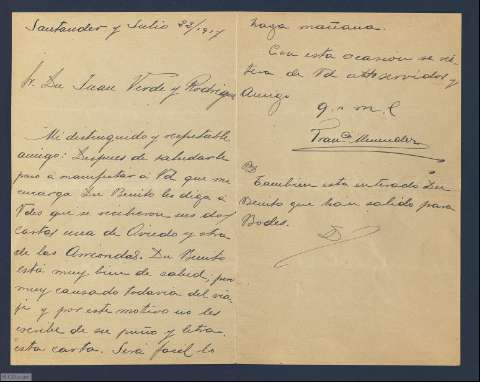 Santander y Julio 23/1917
Sr. Dn Juan Verde y Rodrigue
Mi distinguido y respetable
amigo: Despues de saludarle
paso a manifestar á Vd que me
encarga Dn Benito les diga á
Vdes que se recibieron sus dos
cartas una de Oviedo y otra
de las Arriondas. Dn Benito
está muy bien de salud, pero
muy cansado todavia del via-
je y por este motivo no les
escribe de su puño y letra
esta carta. Será facil lo
haga mañana.
Con esta ocasion se rei-
tera de Vd atto servidor y
Amigo
q. s. m. e
Franco Menendez
PD
Tambien esta enterado Dn
Benito que han salido para
Bodes.